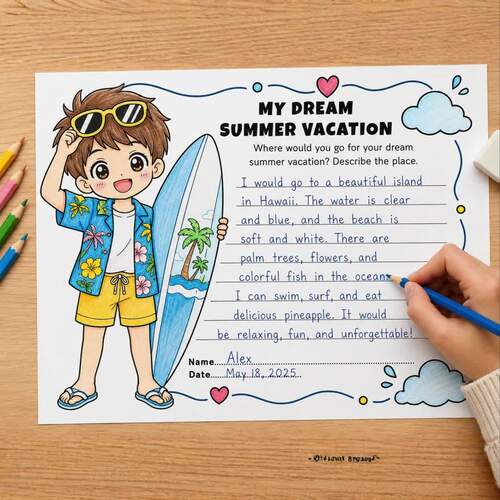 MY DREAM
SUMMER VACATION
Where would you go for your dream
summer vacation? Describe the place.
I would go to a beautiful island
in Hawaii. The water is clear
and blue, and the beach is
soft and white. There are
palm trees, flowers, and
colorful fish in the ocean
I can swim, surf, and eat
delicious pineapple. It would
be relaxing, fun, and unforgettable!
Name Alex
Date May 18, 2025